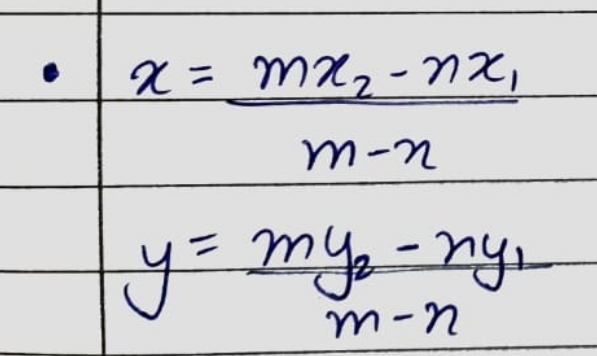 • x = mx₂ - nx₁
m - n
y = my₂ - ny₁
m - n